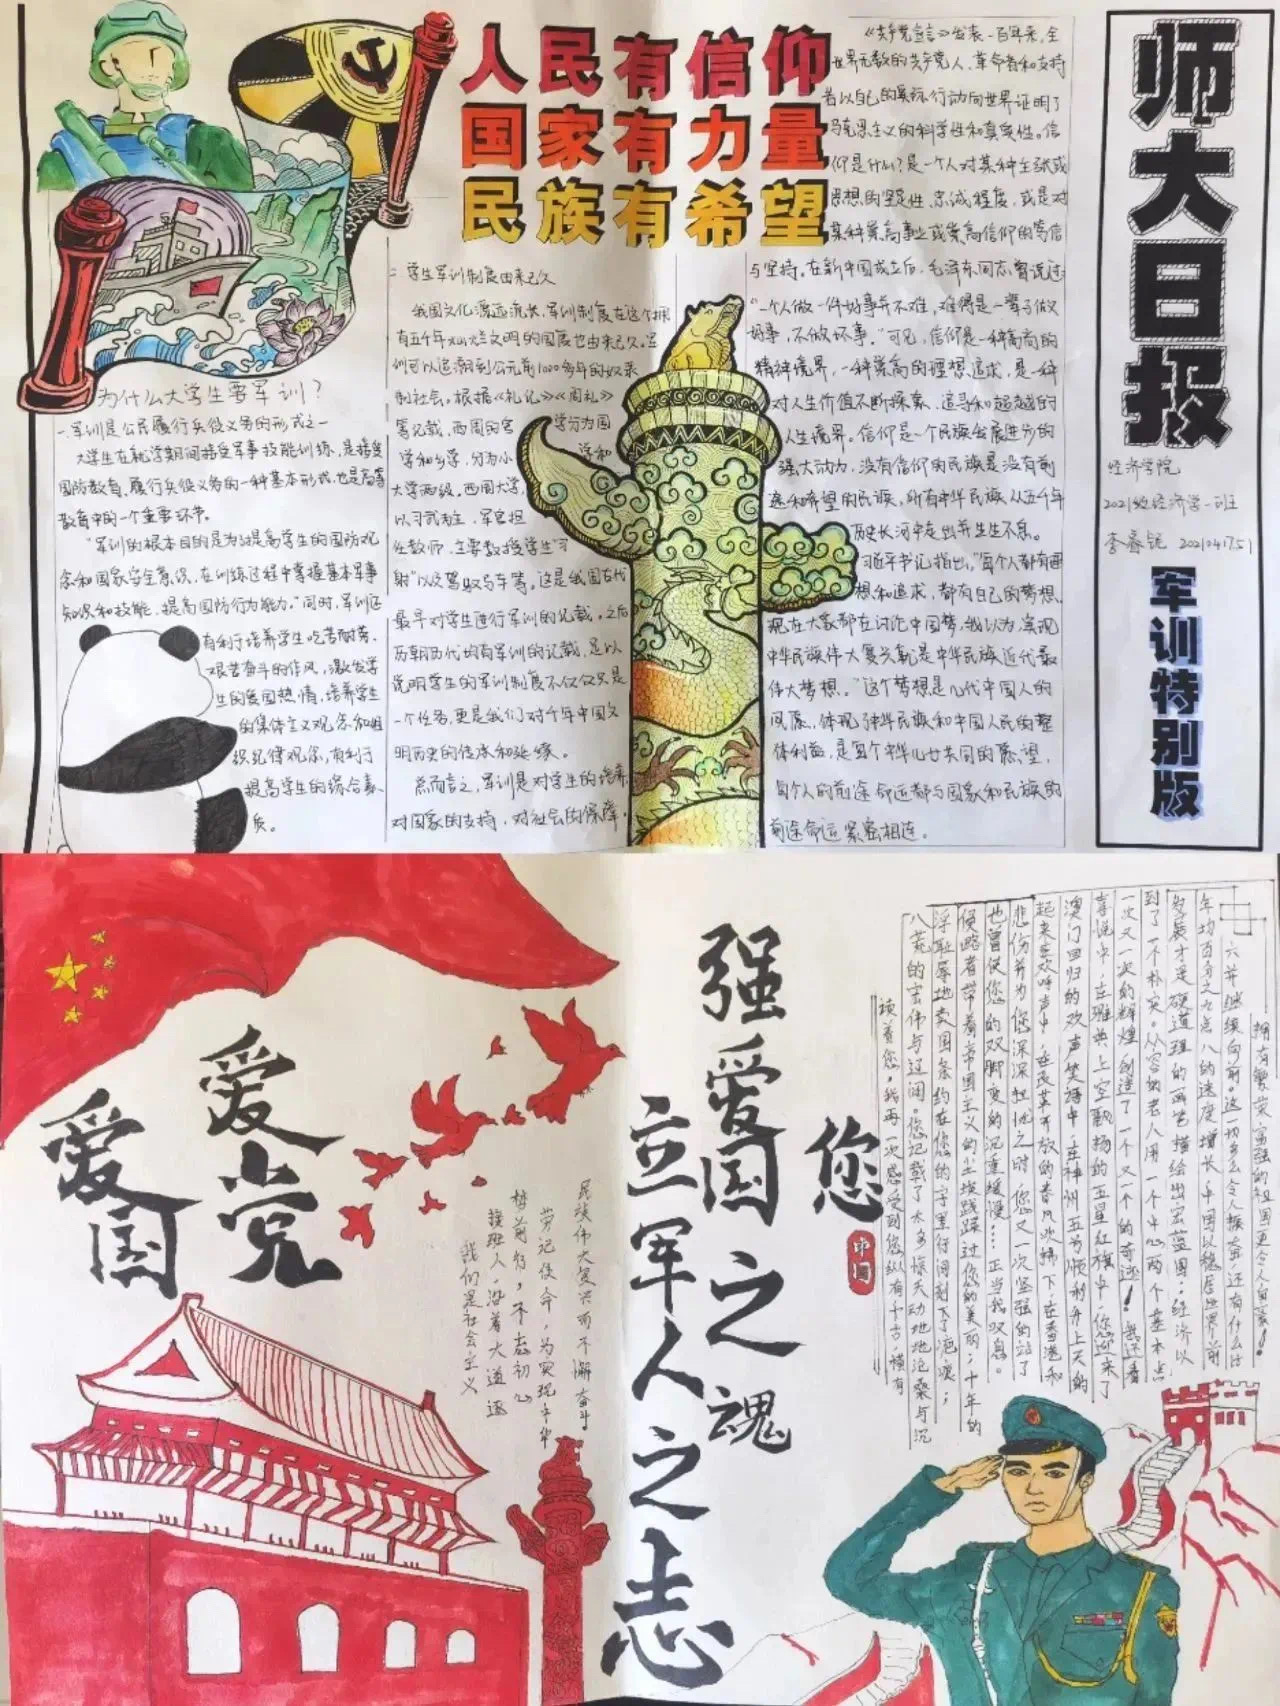 人民有信仰
国家有力量
民族有希望
师大日报
经济学院
2021级经济学一班
军训特别版
为什么大学生要军训？
一、军训是公民履行兵役义务的形式之一
大学生在就学期间接受军事技能训练，是接受
国防教育、履行兵役义务的一种基本形式，也是高等
教育中的一个重要环节。
“军训的根本目的是为了提高学生的国防观
念和国家安全意识，在训练过程中掌握基本军事
知识和技能，提高国防行为能力。”同时，军训还
有利于培养学生吃苦耐劳、
艰苦奋斗的作风，激发学
生的爱国热情，培养学生
的集体主义观念和组
织纪律观念，有利于
提高学生的综合素
质。
二、学生军训制度由来已久
我国文化源远流长，军训制度在这个拥
有五千年灿烂文明的国度也由来已久。军
训可以追溯到公元前1000多年的奴隶
制社会。根据《礼记》《周礼》
等记载，西周的官学分为国
学和乡学，分为小学和
大学两级。西周大学，
以习武为主，军官担
任教师，主要教授学生“习
射”以及驾驭马车等。这是我国古代
最早对学生进行军训的记载。之后
历朝历代均有军训的记载，足以
说明学生的军训制度不仅仅只是
一个任务，更是我们对千年中国文
明历史的传承和延续。
总而言之，军训是对学生的培养，
对国家的支持，对社会的保障。
《共产党宣言》发表一百年来，全
世界无数的共产党人、革命者和支持
者以自己的实际行动向世界证明了
马克思主义的科学性和真实性。信
仰是什么？是一个人对某种主张或
思想的坚定性、忠诚程度，或是对
某种崇高事业或崇高信仰的笃信
与坚持。在新中国成立后，毛泽东同志曾说过：
“一个人做一件好事并不难，难得是一辈子做
好事，不做坏事。”可见，信仰是一种高尚的
精神境界，一种崇高的理想追求，是一种
对人生价值不断探索、追寻和超越的
人生境界。信仰是一个民族发展进步的
强大动力，没有信仰的民族是没有前
途和希望的民族，所有中华民族从五千年
历史长河中走出并生生不息。
习近平书记指出，“每个人都有理
想和追求，都有自己的梦想。
现在大家都在讨论中国梦，我以为，实现
中华民族伟大复兴就是中华民族近代最
伟大梦想。”这个梦想是几代中国人的
夙愿，体现了中华民族和中国人民的整
体利益，是每个中华儿女共同的愿望，
每个人的前途命运都与国家和民族的
前途命运紧密相连。
拥有繁荣富强的祖国更令人自豪！
六并继续向前。这一切多么令人振奋，还有什么比
年均百分之九点八的速度增长，中国以稳居世界前
发展才是硬道理的画笔描绘出宏蓝图；经济以
到了一个朴实。从容的老人用一个中心两个基本点
一次又一次的辉煌，创造了一个又一个的奇迹！我还看
喜悦中，在雅典上空飘扬的五星红旗中，您迎来了
澳门回归的欢声笑语中，在神州五号顺利升上天的
起来在欢呼声中，在改革开放的春风吹拂下，在香港和
悲伤并为您深深担忧之时，您又一次坚强的站了
也曾使您的双脚变的沉重缓慢……正当我叹息。
侵略者带着帝国主义的尘埃践踏过您的美丽；十年的
浮耻辱地卖国条约在您的字里行间刻下了疤痕；
八荒的宏伟与辽阔。您记载了太多惊天动地地沧桑与沉
读着您，我再一次感受到您纵有千古，横有
您
中国
强爱国之魂
立军人之志
爱党
爱国
民族伟大复兴而不懈奋斗。
劳记使命，为实现中华
梦前行，不忘初心
接班人，沿着大道逐
我们是社会主义